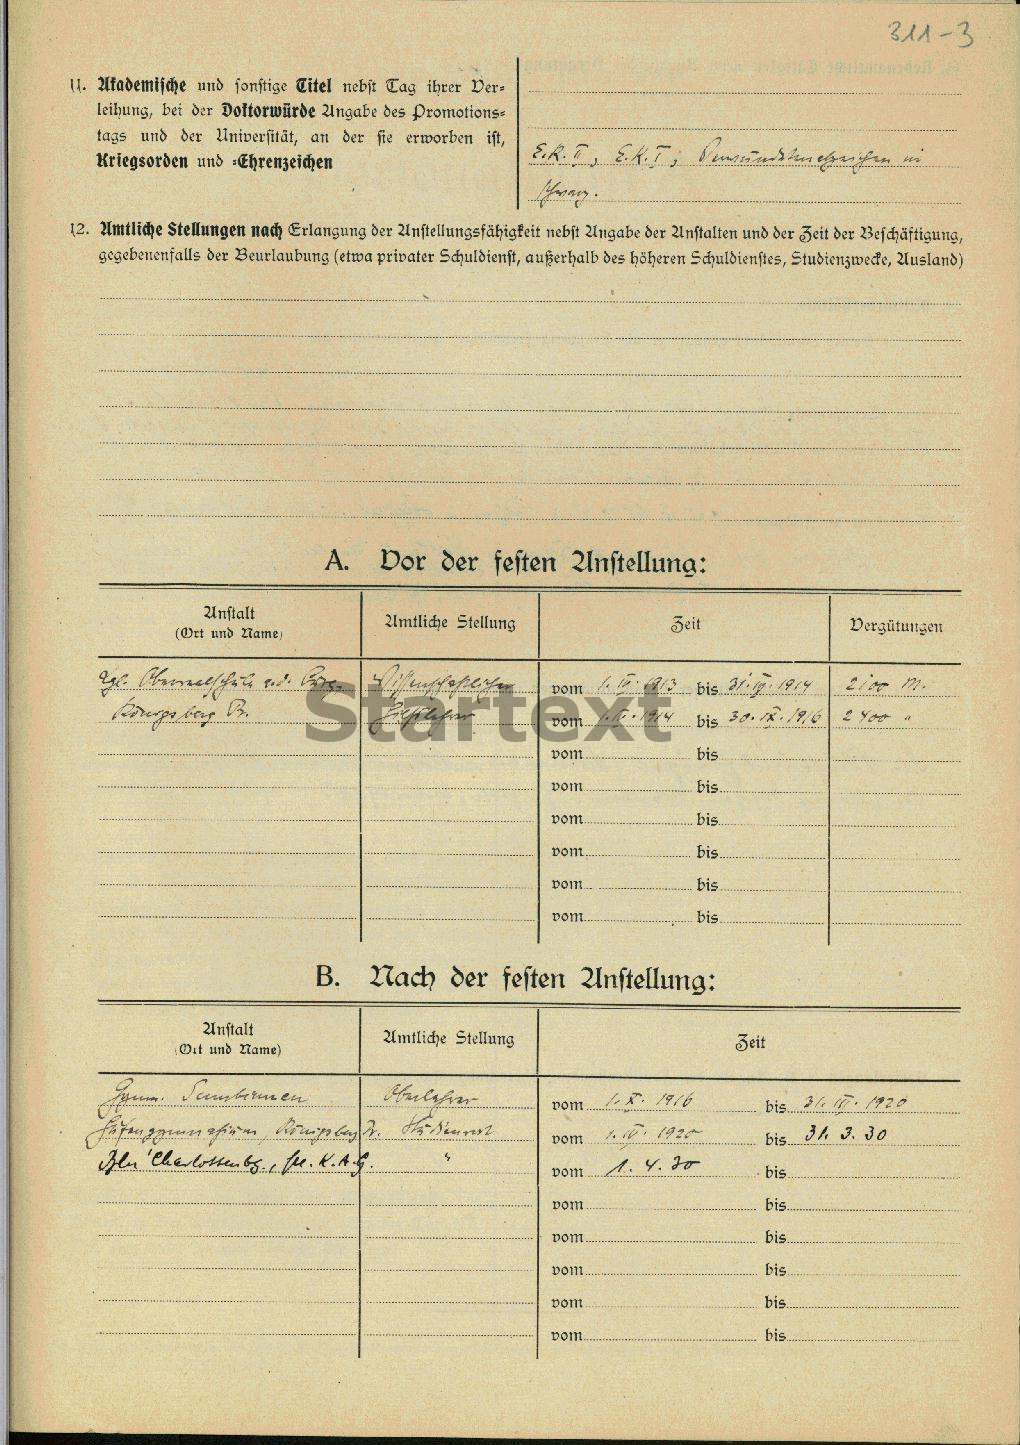 311-3
11. Akademische und sonstige Titel nebst Tag ihrer Ver-
leihung, bei der Doktorwürde Angabe des Promotions-
tags und der Universität, an der sie erworben ist,
Kriegsorden und -Ehrenzeichen
E.K. II, E.K. I, Verwundetenabzeichen in
schwarz.
12. Amtliche Stellungen nach Erlangung der Anstellungsfähigkeit nebst Angabe der Anstalten und der Zeit der Beschäftigung,
gegebenenfalls der Beurlaubung (etwa privater Schuldienst, außerhalb des höheren Schuldienstes, Studienzwecke, Ausland)
A. Vor der festen Anstellung:
Anstalt
(Ort und Name)
Amtliche Stellung
Zeit
Vergütungen
Kgl. Oberrealschule a.d. Burg Wissenschaftlicher vom 1. IV. 1913 bis 31. III. 1914 2100 M.
Königsberg Pr. Hilfslehrer vom 1. IV. 1914 bis 30. IX. 1916 2400 "
vom bis
vom bis
vom bis
vom bis
vom bis
vom bis
Startext
B. Nach der festen Anstellung:
Anstalt
(Ort und Name)
Amtliche Stellung
Zeit
Gymn. Gumbinnen Oberlehrer vom 1. X. 1916 bis 31. III. 1920
Hufengymnasium, Königsberg Pr. Studienrat vom 1. IV. 1920 bis 31. 3. 30
Bln Charlottenbg., K. A. G. " vom 1. 4. 30 bis
vom bis
vom bis
vom bis
vom bis
vom bis